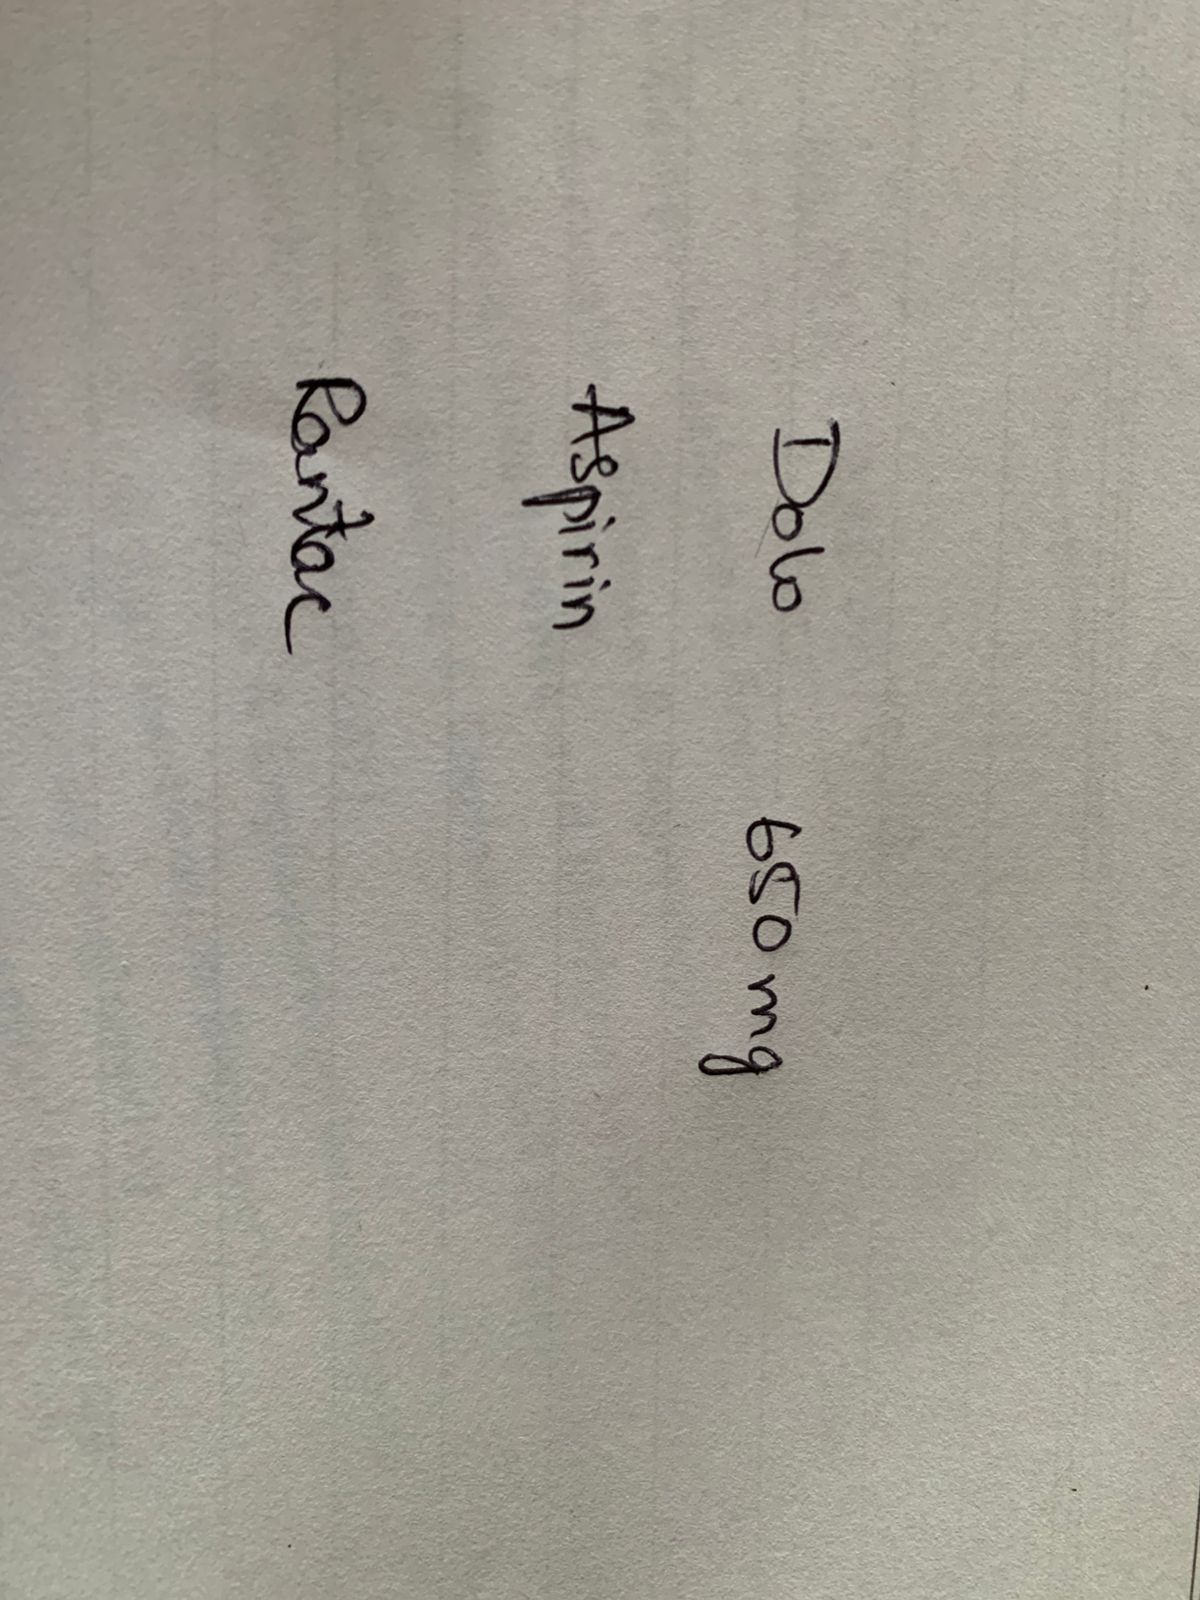 Dolo 650 mg
Aspirin
Rantac